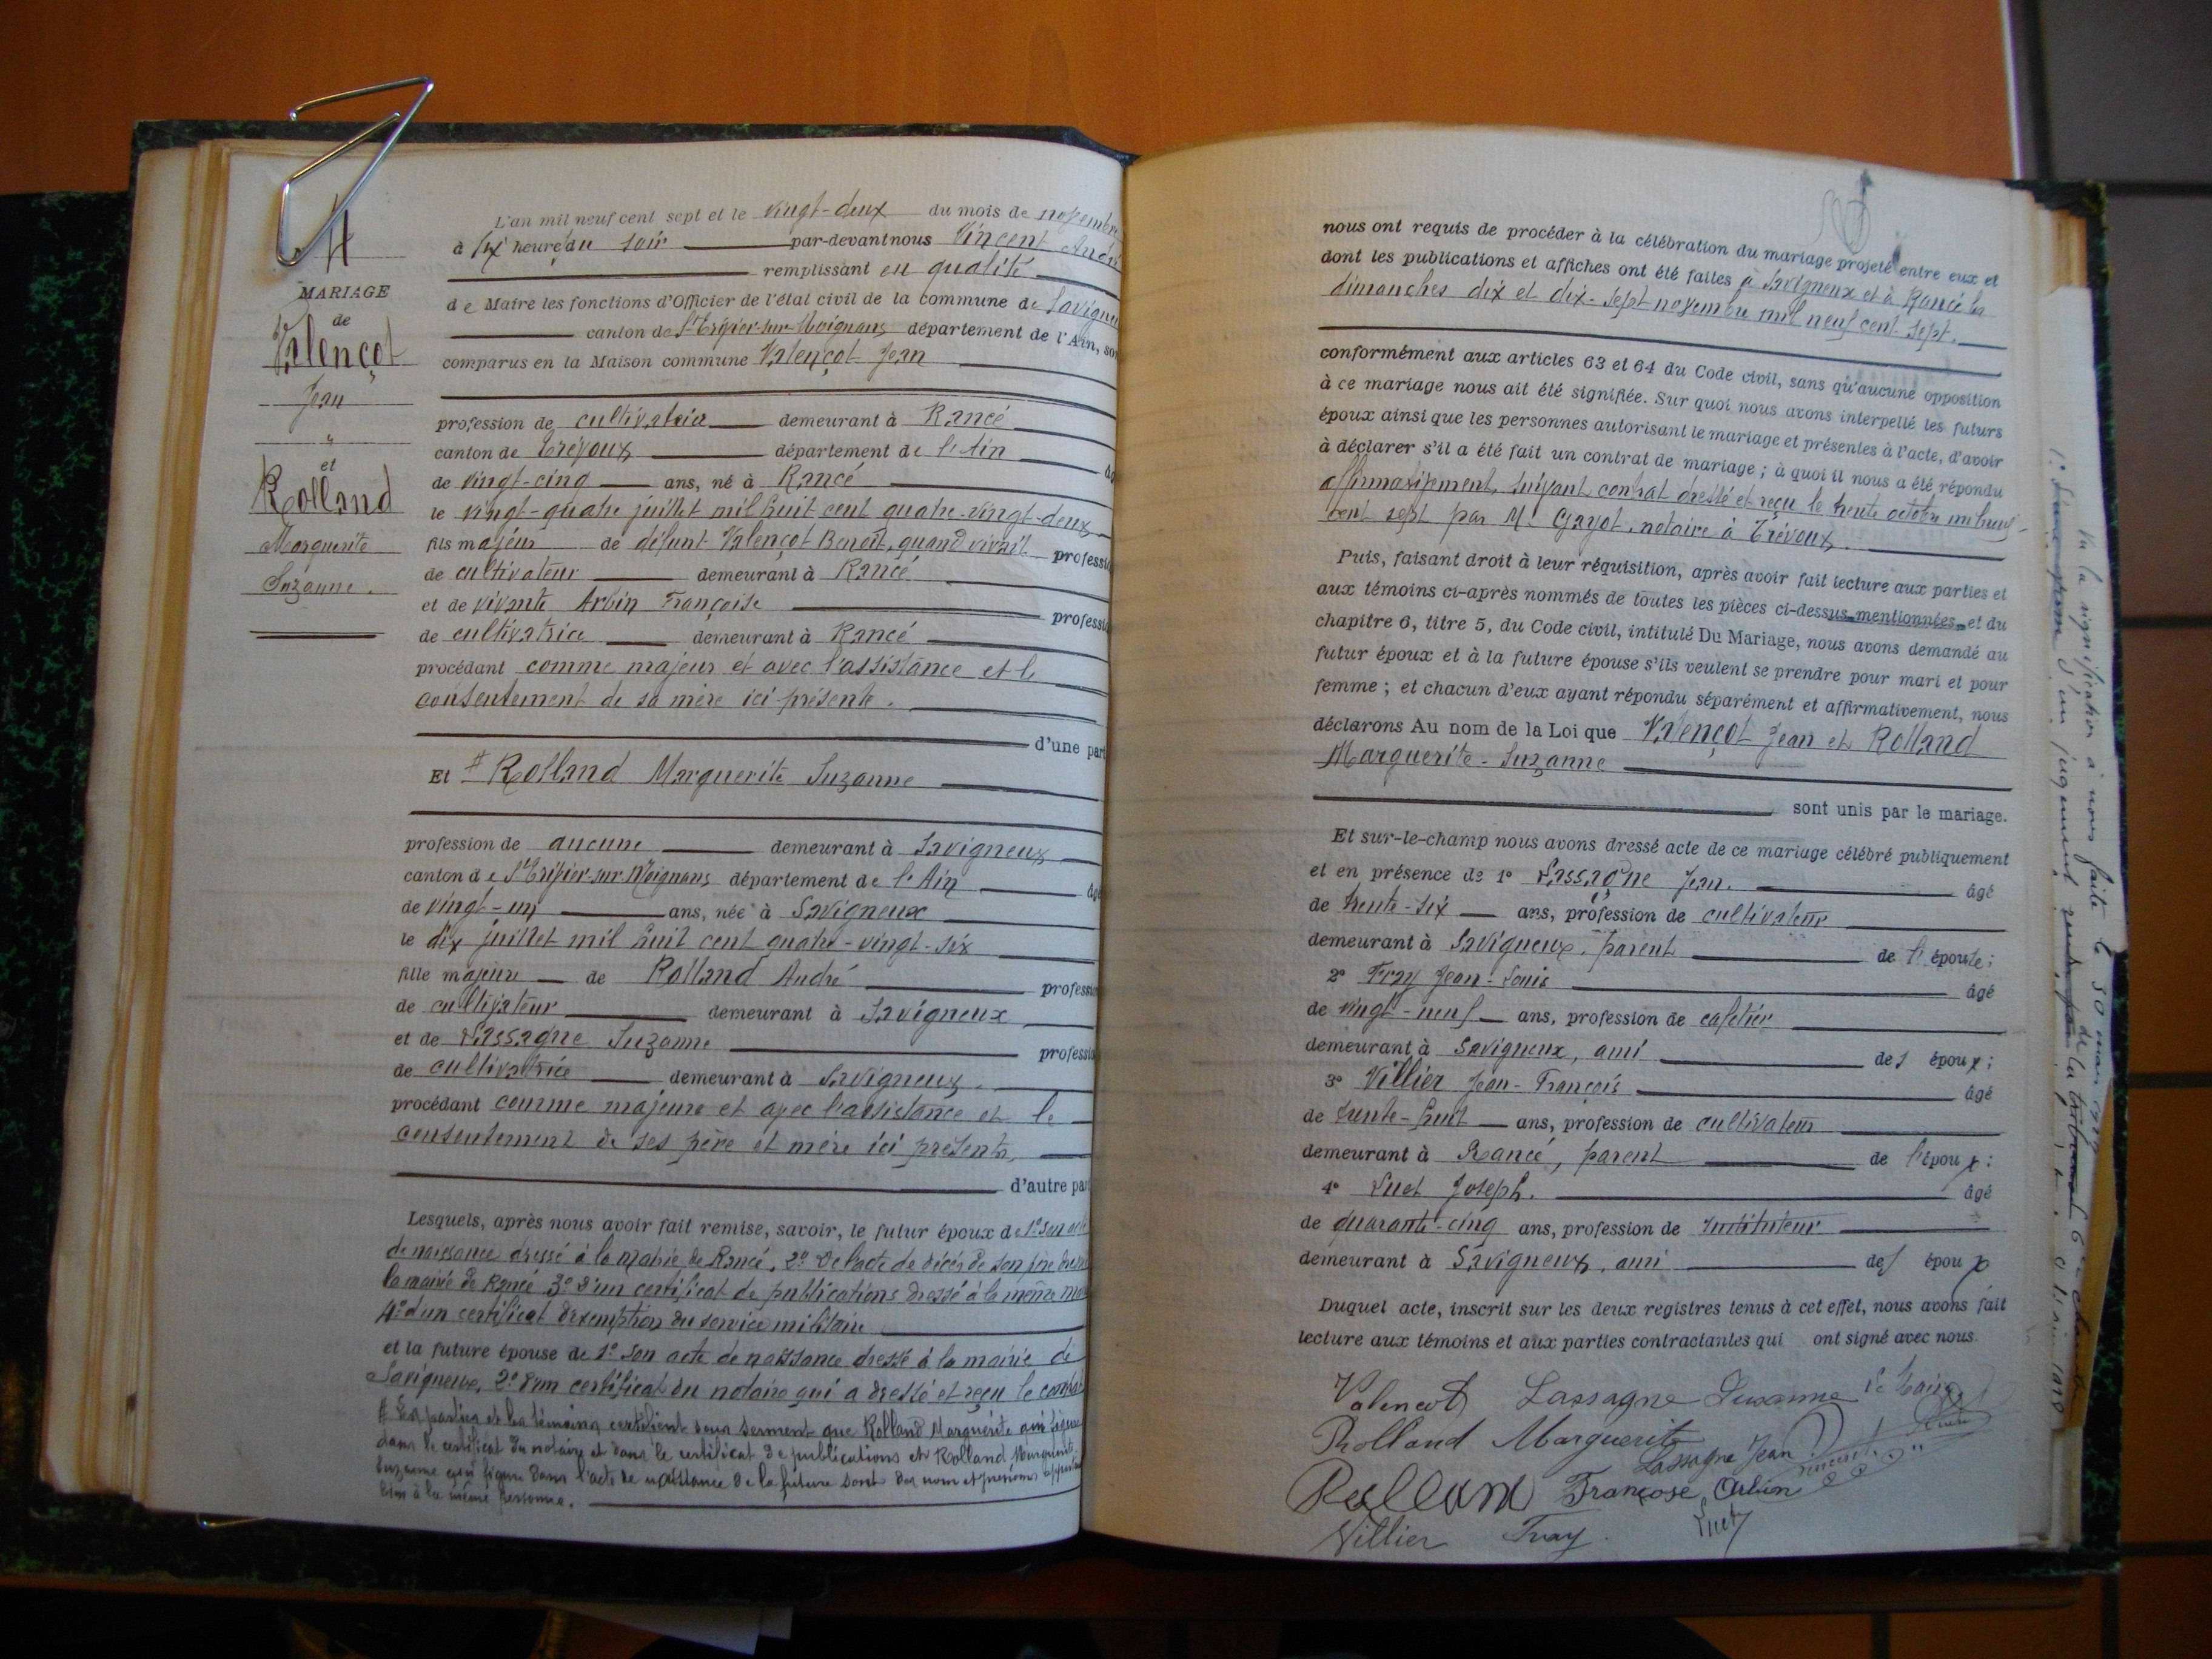 4
MARIAGE
de
Valençot
Jean
"
et
Rolland
Marguerite
Suzanne.
L'an mil neuf cent sept et le vingt-deux du mois de novembre
à six heure du soir par-devant nous Vincent André
remplissant en qualité
de Maire les fonctions d'Officier de l'état civil de la commune de Savigneux
canton de St Trivier-sur-Moignans département de l'Ain, sont
comparus en la Maison commune Valençot Jean
profession de cultivateur demeurant à Rancé
canton de Trévoux département de l'Ain
de vingt-cinq ans, né à Rancé
le vingt-quatre juillet mil huit cent quatre-vingt-deux
fils majeur de défunt Valençot Benoît, quand vivait profession
de cultivateur demeurant à Rancé
et de vivante Arbin Françoise profession
de cultivatrice demeurant à Rancé
procédant comme majeur et avec l'assistance et le
consentement de sa mère ici présente.
d'une part
Et # Rolland Marguerite Suzanne
profession de aucune demeurant à Savigneux
canton de St Trivier-sur-Moignans département de l'Ain
de vingt-un ans, née à Savigneux
le dix juillet mil huit cent quatre-vingt-six
fille majeure de Rolland André profession
de cultivateur demeurant à Savigneux
et de Lassagne Suzanne profession
de cultivatrice demeurant à Savigneux.
procédant comme majeure et avec l'assistance et le
consentement de ses père et mère ici présents,
d'autre part
Lesquels, après nous avoir fait remise, savoir, le futur époux de 1° son acte
de naissance dressé à la mairie de Rancé, 2° De l'acte de décès de son père dressé
la mairie de Rancé 3° d'un certificat de publications dressé à la même mairie
4° d'un certificat d'exemption du service militaire
et la future épouse de 1° son acte de naissance dressé à la mairie de
Savigneux, 2° d'un certificat du notaire qui a dressé et reçu le contrat
# Les parties et les témoins certifient sous serment que Rolland Marguerite qui figure
dans le certificat du notaire et dans le certificat de publications et Rolland Marguerite
Suzanne qui figure dans l'acte de naissance de la future sont des nom et prénoms
bien à la même personne.
nous ont requis de procéder à la célébration du mariage projeté entre eux et
dont les publications et affiches ont été faites à Savigneux et à Rancé les
dimanches dix et dix-sept novembre mil neuf cent sept.
conformément aux articles 63 et 64 du Code civil, sans qu'aucune opposition
à ce mariage nous ait été signifiée. Sur quoi nous avons interpellé les futurs
époux ainsi que les personnes autorisant le mariage et présentes à l'acte, d'avoir
à déclarer s'il a été fait un contrat de mariage ; à quoi il nous a été répondu
affirmativement, suivant contrat dressé et reçu le trente octobre mil neuf
cent sept par Me Gayot, notaire à Trévoux.
Puis, faisant droit à leur réquisition, après avoir fait lecture aux parties et
aux témoins ci-après nommés de toutes les pièces ci-dessus mentionnées et du
chapitre 6, titre 5, du Code civil, intitulé Du Mariage, nous avons demandé au
futur époux et à la future épouse s'ils veulent se prendre pour mari et pour
femme ; et chacun d'eux ayant répondu séparément et affirmativement, nous
déclarons Au nom de la Loi que Valençot Jean et Rolland
Marguerite-Suzanne
sont unis par le mariage.
Et sur-le-champ nous avons dressé acte de ce mariage célébré publiquement
et en présence de 1° Lassagne Jean. âgé
de trente-six ans, profession de cultivateur
demeurant à Savigneux, parent de l'épouse ;
2° Fray Jean-Louis âgé
de vingt-neuf ans, profession de cafetier
demeurant à Savigneux, ami des époux ;
3° Villier Jean-François âgé
de trente-huit ans, profession de cultivateur
demeurant à Rancé, parent de l'époux :
4° Luet Joseph. âgé
de quarante-cinq ans, profession de instituteur
demeurant à Savigneux, ami des époux
Duquel acte, inscrit sur les deux registres tenus à cet effet, nous avons fait
lecture aux témoins et aux parties contractantes qui ont signé avec nous.
Valencot Lassagne Suzanne le Maire
Rolland Marguerite
Lassagne Jean Vincent André
Rolland Françoise Arbin
Villier Fray. Luet
Vu la signification à nous faite le 30 mars 1919